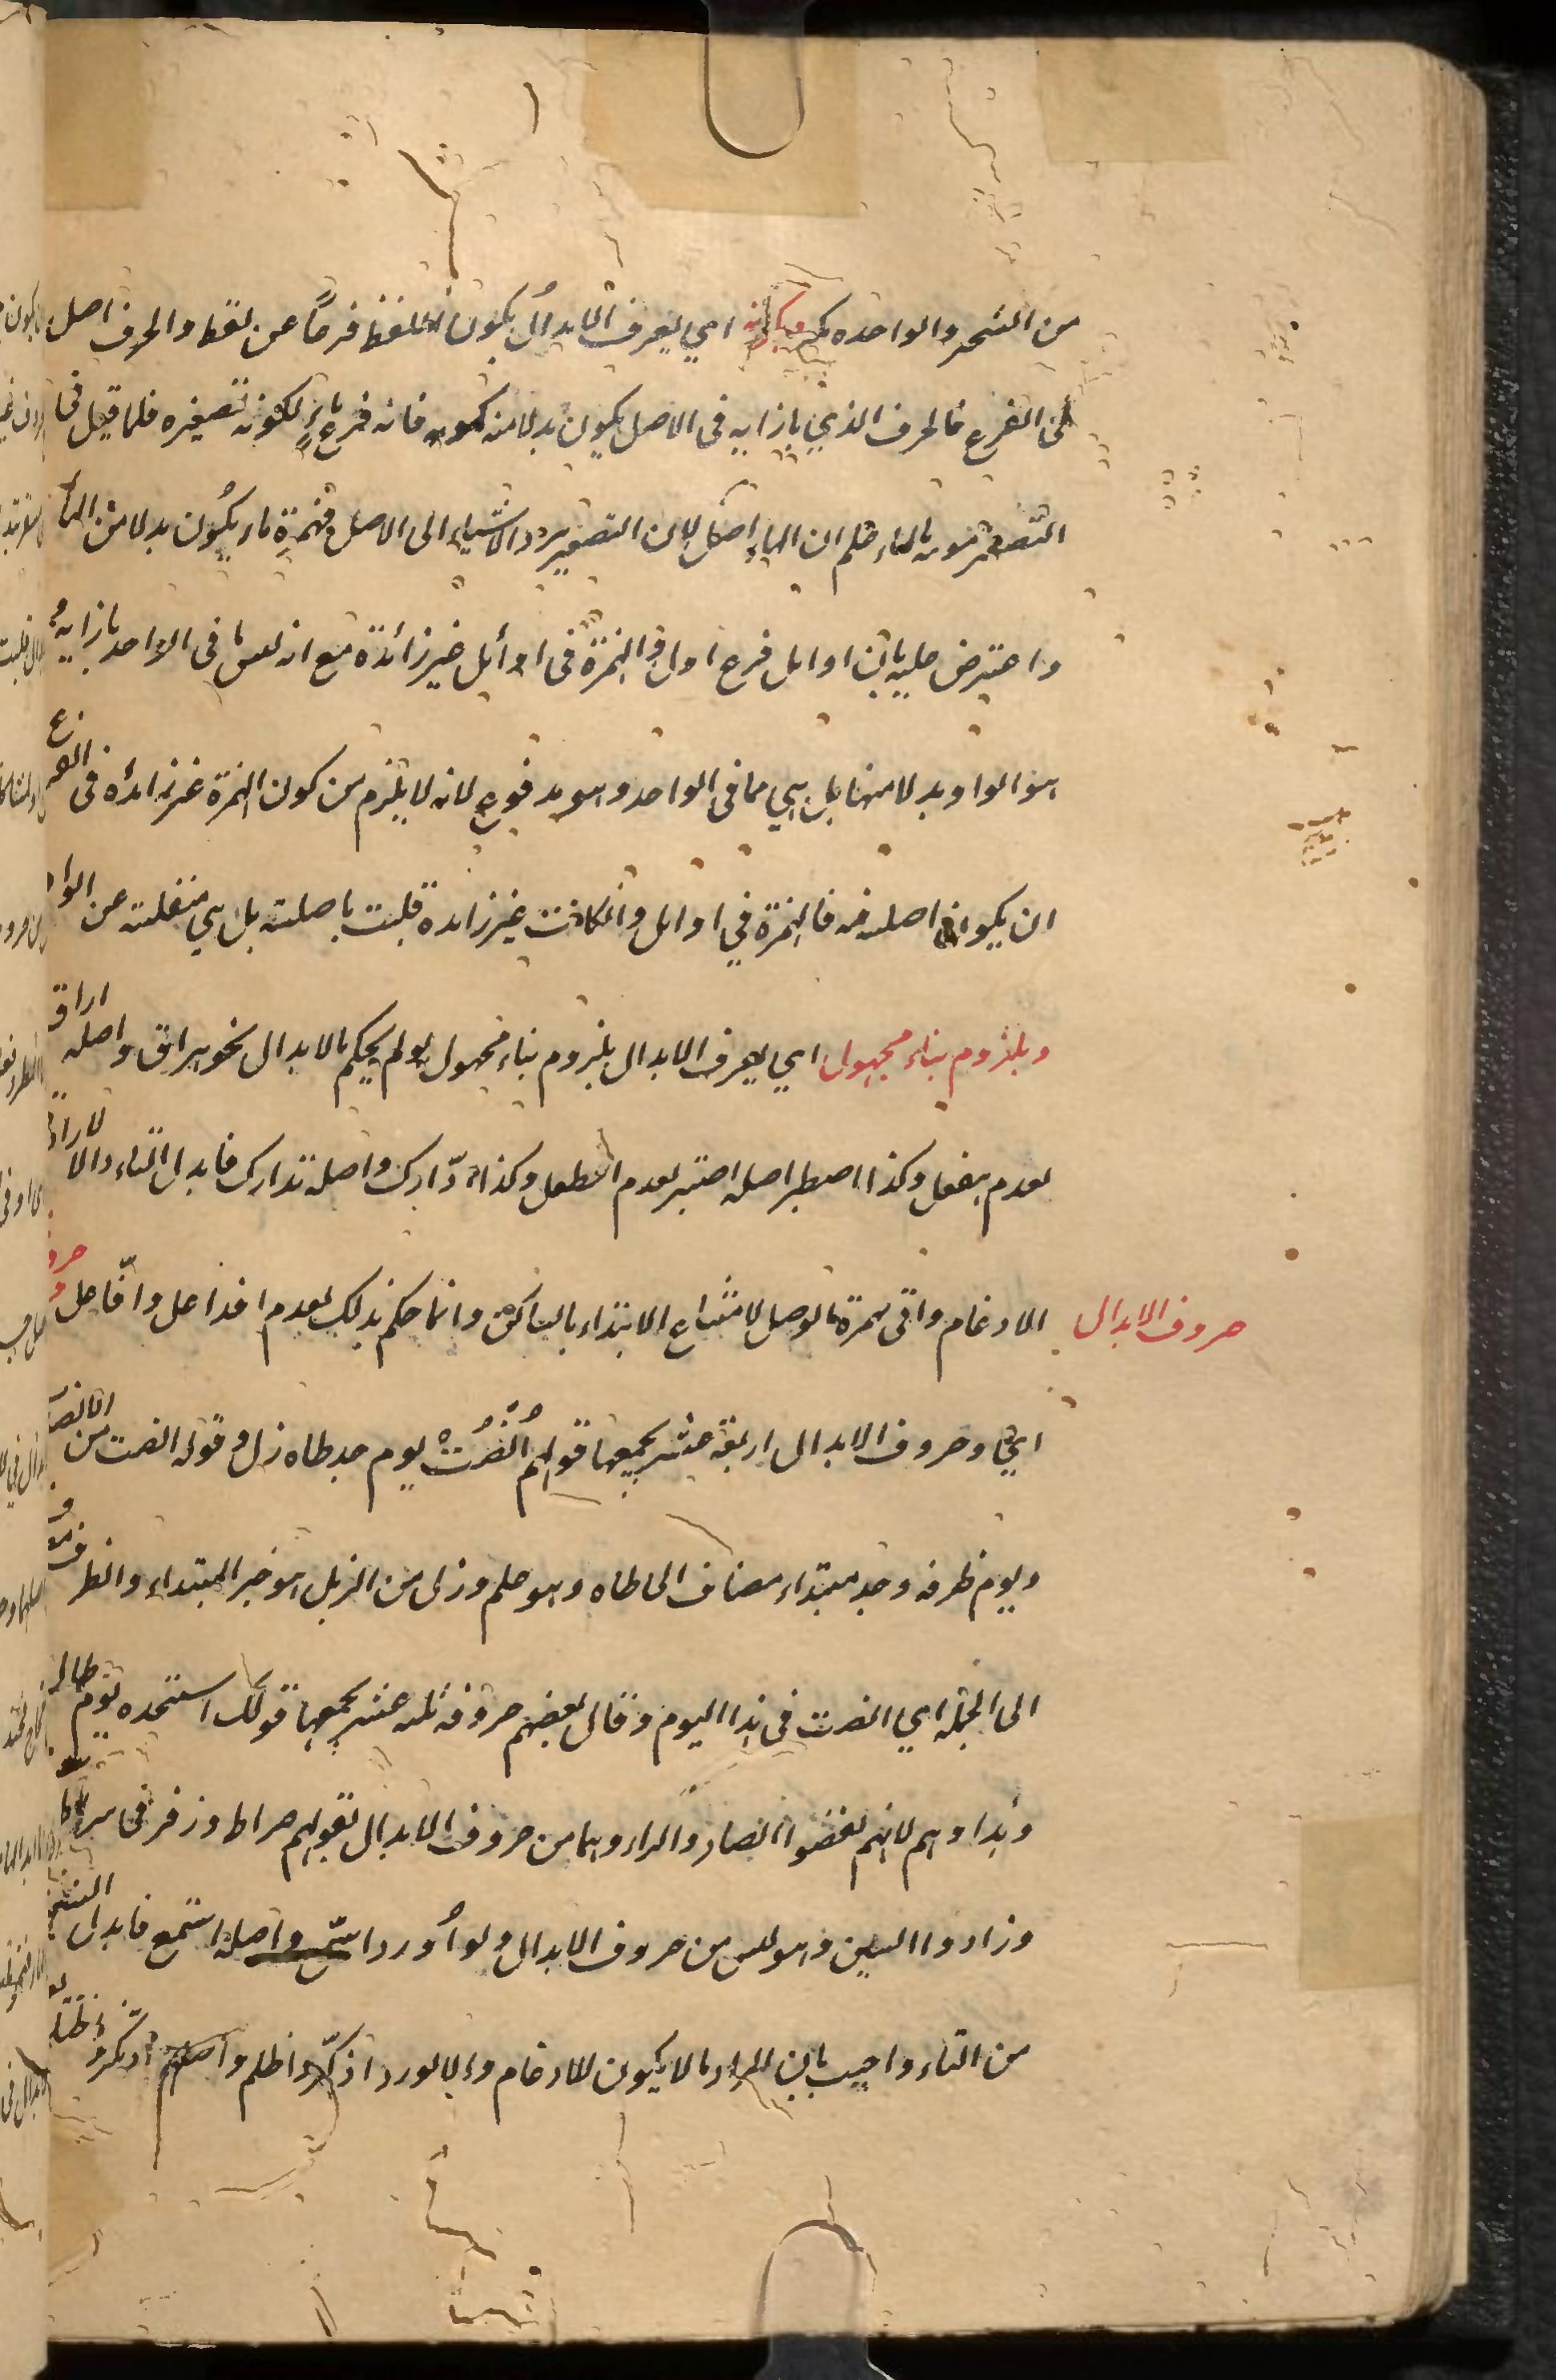 من الشجر والواحدة كر وبكونه اي يعرف الابدال بكون اللفظ فرعاً عن لفظ والحرف اصل
في الفرع فالحرف الذي بازايه في الاصل يكون بدلا منه كمويه فانه فرع ماء لكونه تصغيره فلما قيل في
التصغير مويه بالهاء علم ان الهاء اصل لان التصغير يرد الاشياء الى الاصل فهمزة ماء يكون بدلا من الهاء
واعترض عليه بان اوايل فرع اول والهمزة في اوائل غير زائدة مع انه ليس ما في الواحد بازايه و
هو الواو بدلا منها بل هي مما في الواحد وهو مدفوع لانه لا يلزم من كون الهمزة غير زائده في الفرع
ان يكون اصليه فالهمزة في اوايل وان كانت غير زايدة ليست باصليه بل هي منقلبة عن الواو
وبلزوم بناء مجهول اي يعرف الابدال بلزوم بناء مجهول لو لم يحكم بالابدال نحو هراق واصله اراق
لعدم هفعل وكذا اصطبر اصله اصتبر لعدم افطعل وكذا ادّارك واصله تدارك فابدل التاء دالا لارادة
الادغام واتى بهمزة الوصل لامتناع الابتداء بالساكن وانما حكم بذلك لعدم افداعل وافّاعل وحروفه
حروف الابدال
اي وحروف الابدال اربعة عشر يجمعها قولهم اُنْصُرتْ يوم جد طاه زل وقوله انصت من الانصات
ويوم ظرفه وجد مبتداء مضاف الى طاه وهو علم وزل من الزلل هو خبر المبتداء والظرف مضاف
الى الجملة اي انصت في هذا اليوم وقال بعضهم حروفه ثلثة عشر يجمعها قولك استنجده يوم طال
وهذا وهم لانهم نقضوا الصاد والزاء وهما من حروف الابدال لقولهم صراط وزقر في سراط
وزادوا السين وهو ليس من حروف الابدال ولو اُورد اسّمع واصله استمع فابدل السين
من التاء واجيب بان المراد ما لا يكون للادغام والا لورد اذكّر واظلم واصلهما اذتكر واظتلم